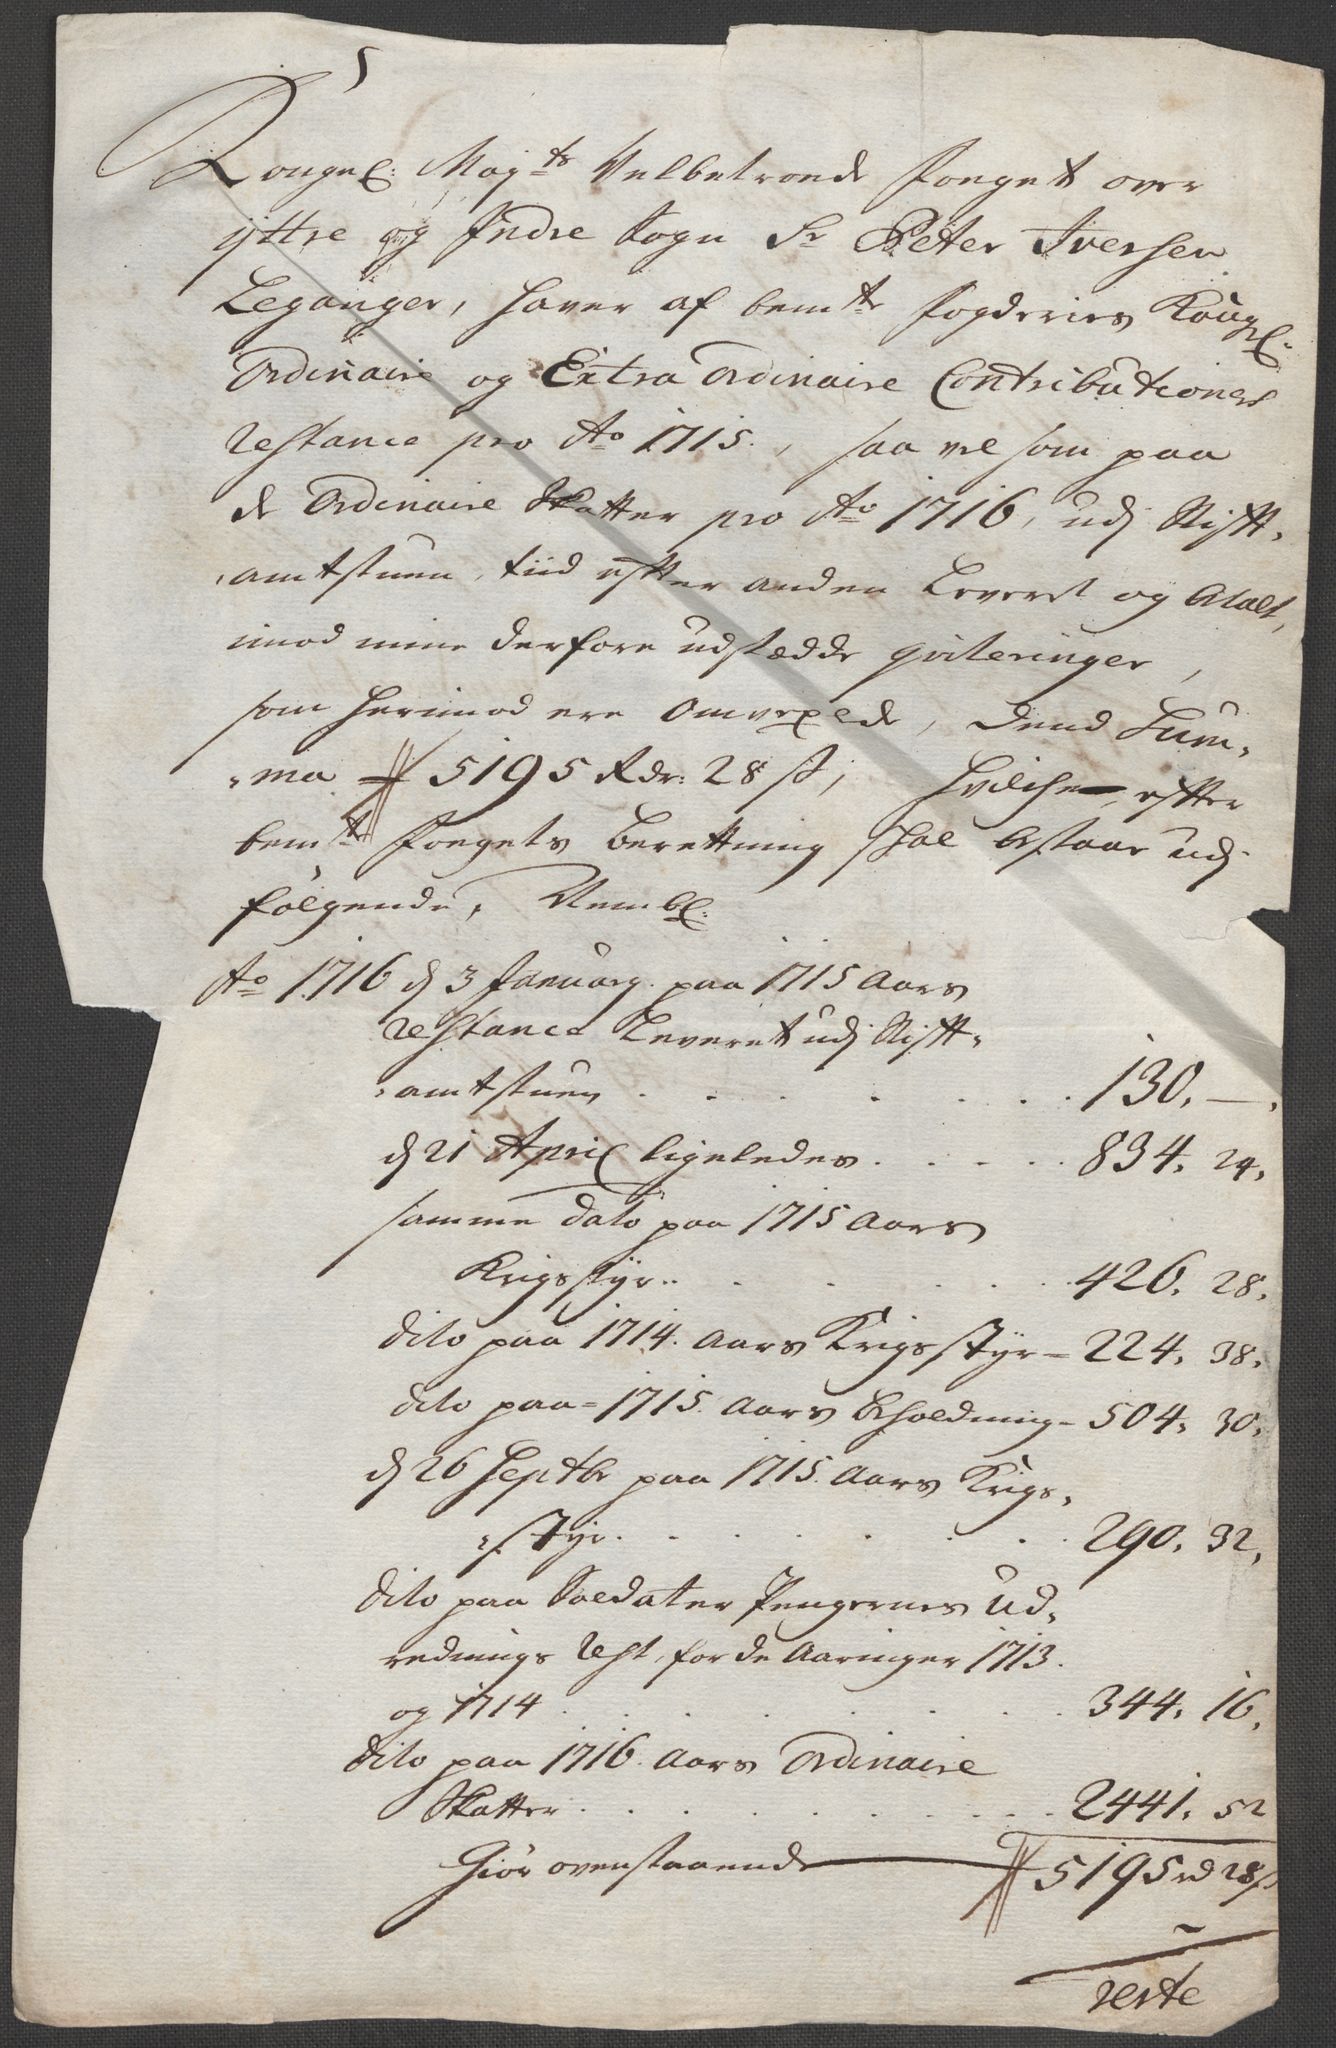 5
Kongel: Majts Velbetroede Fouget over
ÿttre og Indre Sogn Sr Peter Iversen
Leganger, haver af bemte Fogderies Kongl:
Ordinaire og Extra Ordinaire Contributioners
Restance pro Ao 1715., saa vel som paa
de Ordinaire Skatter pro Ao 1716, udj Stift-
amtstuen, tiid efter anden Leveret og betalt,
imod mine derfore udstædde qviteringer,
som herimod ere omvexlede, dend Sum-
ma 5195 Rdr: 28 s, hvilche, efter
bemte Fougets berettning skal bestaae udj
følgende, Nembl:
Ao 1716 d 3 Januarij. paa 1715 Aars
Restance Leveret udj Stift-
amtstuen . . . . . 130. —.
d 21 April ligeledes . . . . 834. 24.
samme dato paa 1715 Aars
Krigsstÿr . . . . . 426. 28.
dito paa 1714. Aars Krigsstÿr - 224. 38.
dito paa - 1715. Aars beholdning - 504. 30.
d 26 Septbr paa 1715. Aars Krigs-
stÿr . . . . . . 290. 32.
dito paa Soldater Pengernes Ud-
rednings Rest, for de Aaringer 1713.
og 1714 . . . . . . 344. 16.
dito paa 1716. Aars Ordinaire
Skatter . . . . . . . 2441. 52
Giør ovenstaaende 5195 rd 28 s
verte